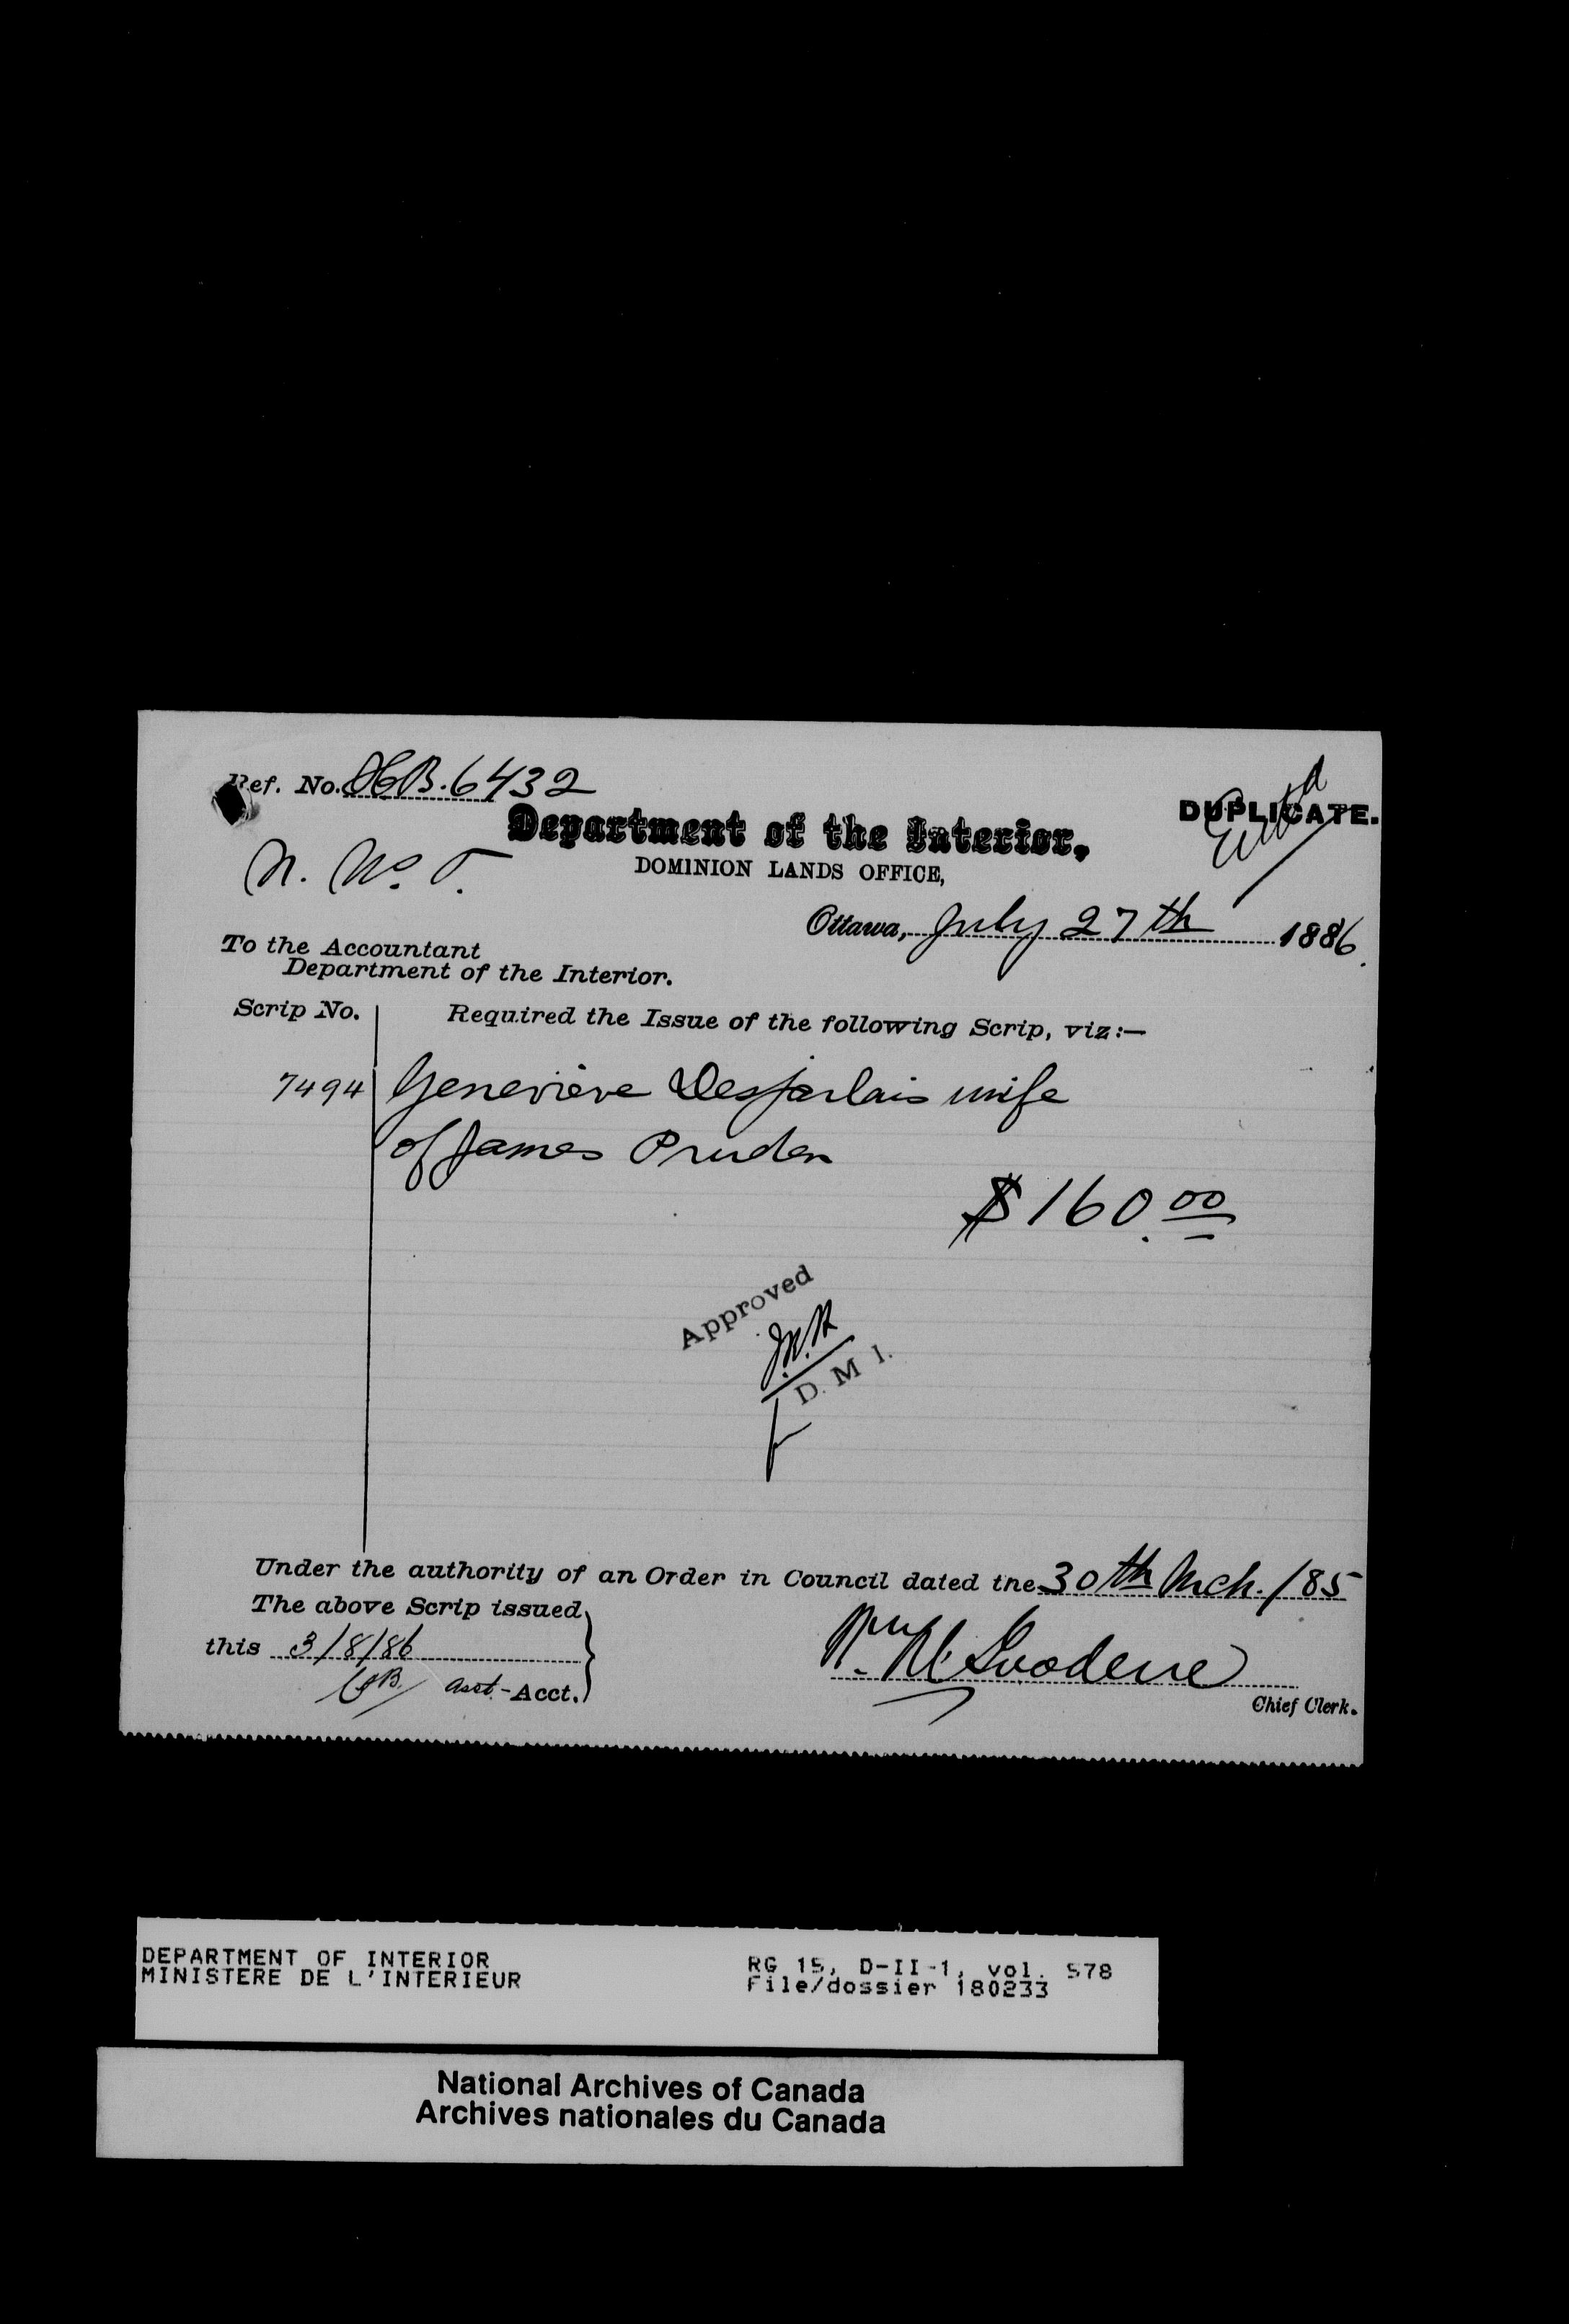 Ref. No. HB. 6432
DUPLICATE.
Department of the Interior,
N. W. T.
DOMINION LANDS OFFICE,
Ottawa, July 27th 1886.
To the Accountant
Department of the Interior.
Scrip No. Required the Issue of the following Scrip, viz:—
7494 Geneviève Desjarlais wife
of James Pruden
$160.00
Approved
D. M I.
Under the authority of an Order in Council dated the 30th Mch. /85
The above Scrip issued
this 3/8/86
Asst-Acct.
Chief Clerk.
DEPARTMENT OF INTERIOR
MINISTERE DE L'INTERIEUR
RG 15, D-II-1, vol. 578
File/dossier 180233
National Archives of Canada
Archives nationales du Canada